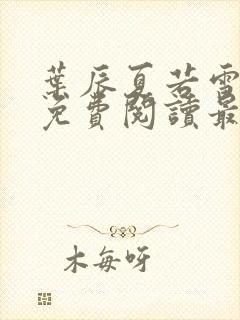 葉辰夏若雪
免費閱讀最
木每呀